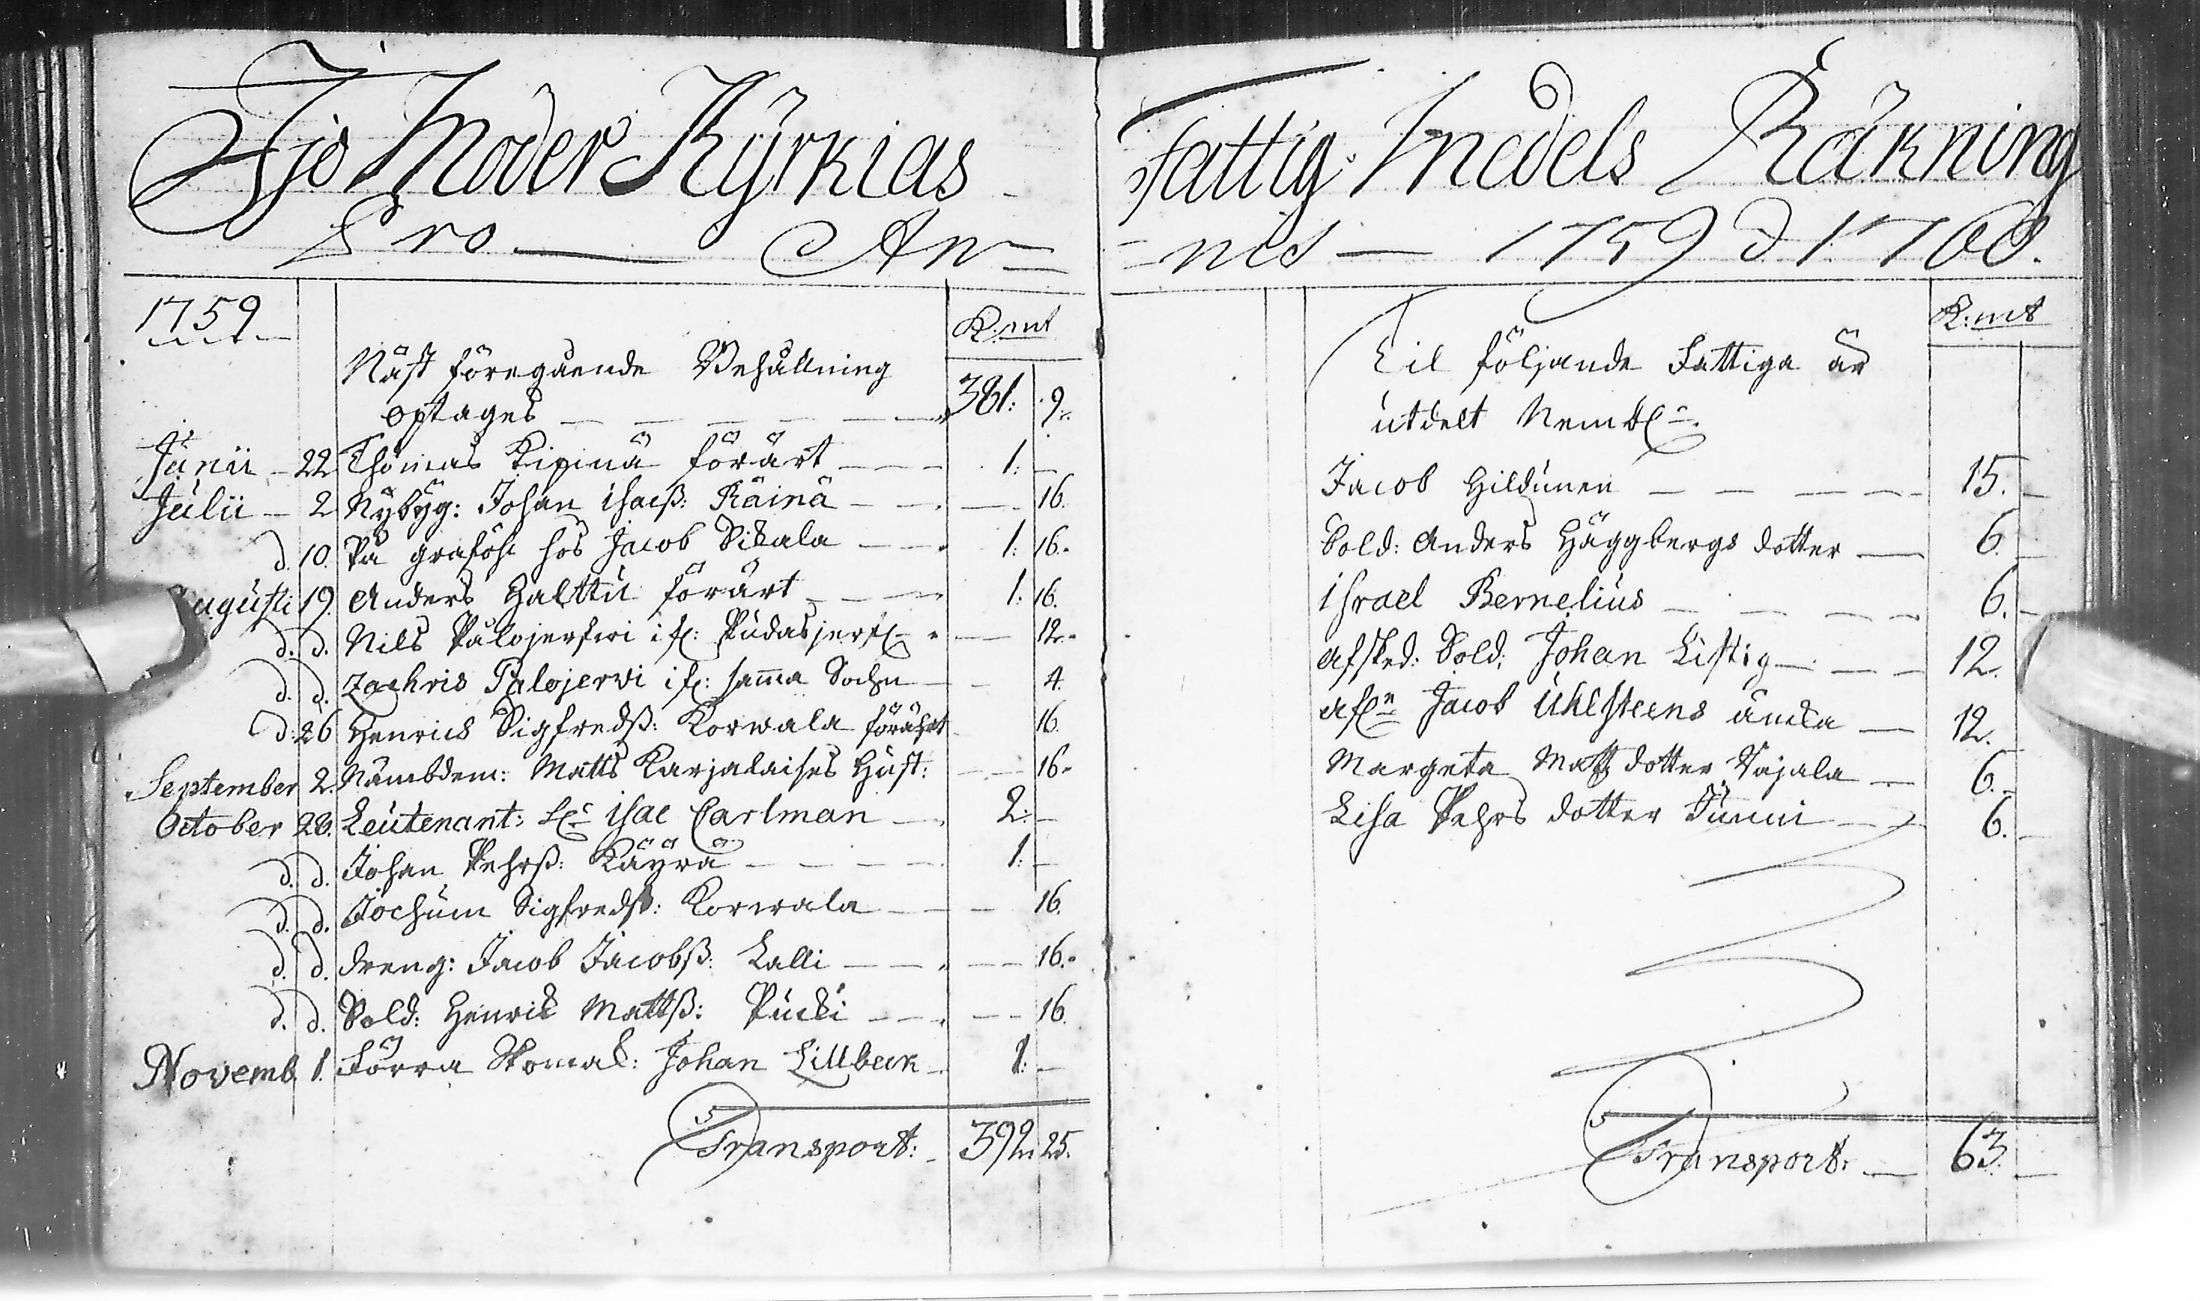 Ijo Moder Kyrkias
Pro — An=
1759
K:mt
Näst föregående Behållning
optages — 381: 9:
Junii — 22 Thomas Kipinä förärt — 1: —
Julii — 2 Nybyg: Johan Isacß: Räinä — 16.
d. 10. På graföhl hos Jacob Sikala — 1: 16.
Augusti 19. Anders Halttu förärt — 1: 16.
d. d. Nils Palojerfwi if: Pudasjerf — 12.
d. d. Zachris Palojervi if: samma Sochn — 4.
d. 26 Henrich Sigfredß: Korwala förährt 16.
September 2. Nämbdem: Matts Karjalaises Hust: — 16.
October 28. Leutenant: Isac Carlman — 2: —
d. d. Johan Pehrß: Käyrä — 1: —
d. d. Jochum Sigfredß: Korwala — 16.
d. d. Dreng: Jacob Jacobß: Lalli — 16.
d. d. Sold: Henrik Mattß: Pucki — 16.
Novemb 1. Förra Skomak: Johan Lillbeck — 1: —
Transport: 392: 25.
Fattig: Medels Räkning
=nis — 1759 & 1760.
K:mt
Til följande Fattiga är
utdelt Neml:
Jacob Hildunen — 15. —
Sold: Anders Häggbergs dotter — 6. —
Israel Bernelius — 6. —
Afsked: Sold: Johan Listig — 12.
Afl:n Jacob Uhlsteens äncka — 12.
Margeta Matts dotter Pajala — 6. —
Lisa Pehrs dotter Tunni — 6. —
Transport: — 63. —